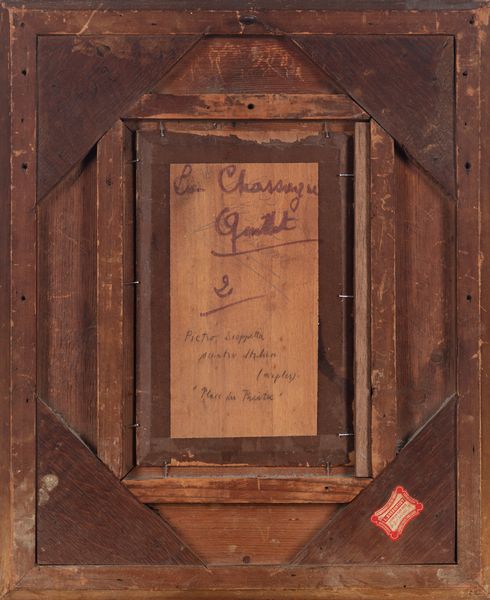 Bon Chassagne
Quillet
2
Pietro Scoppetta
peintre Italien
(Naples).
"Place du Théâtre"